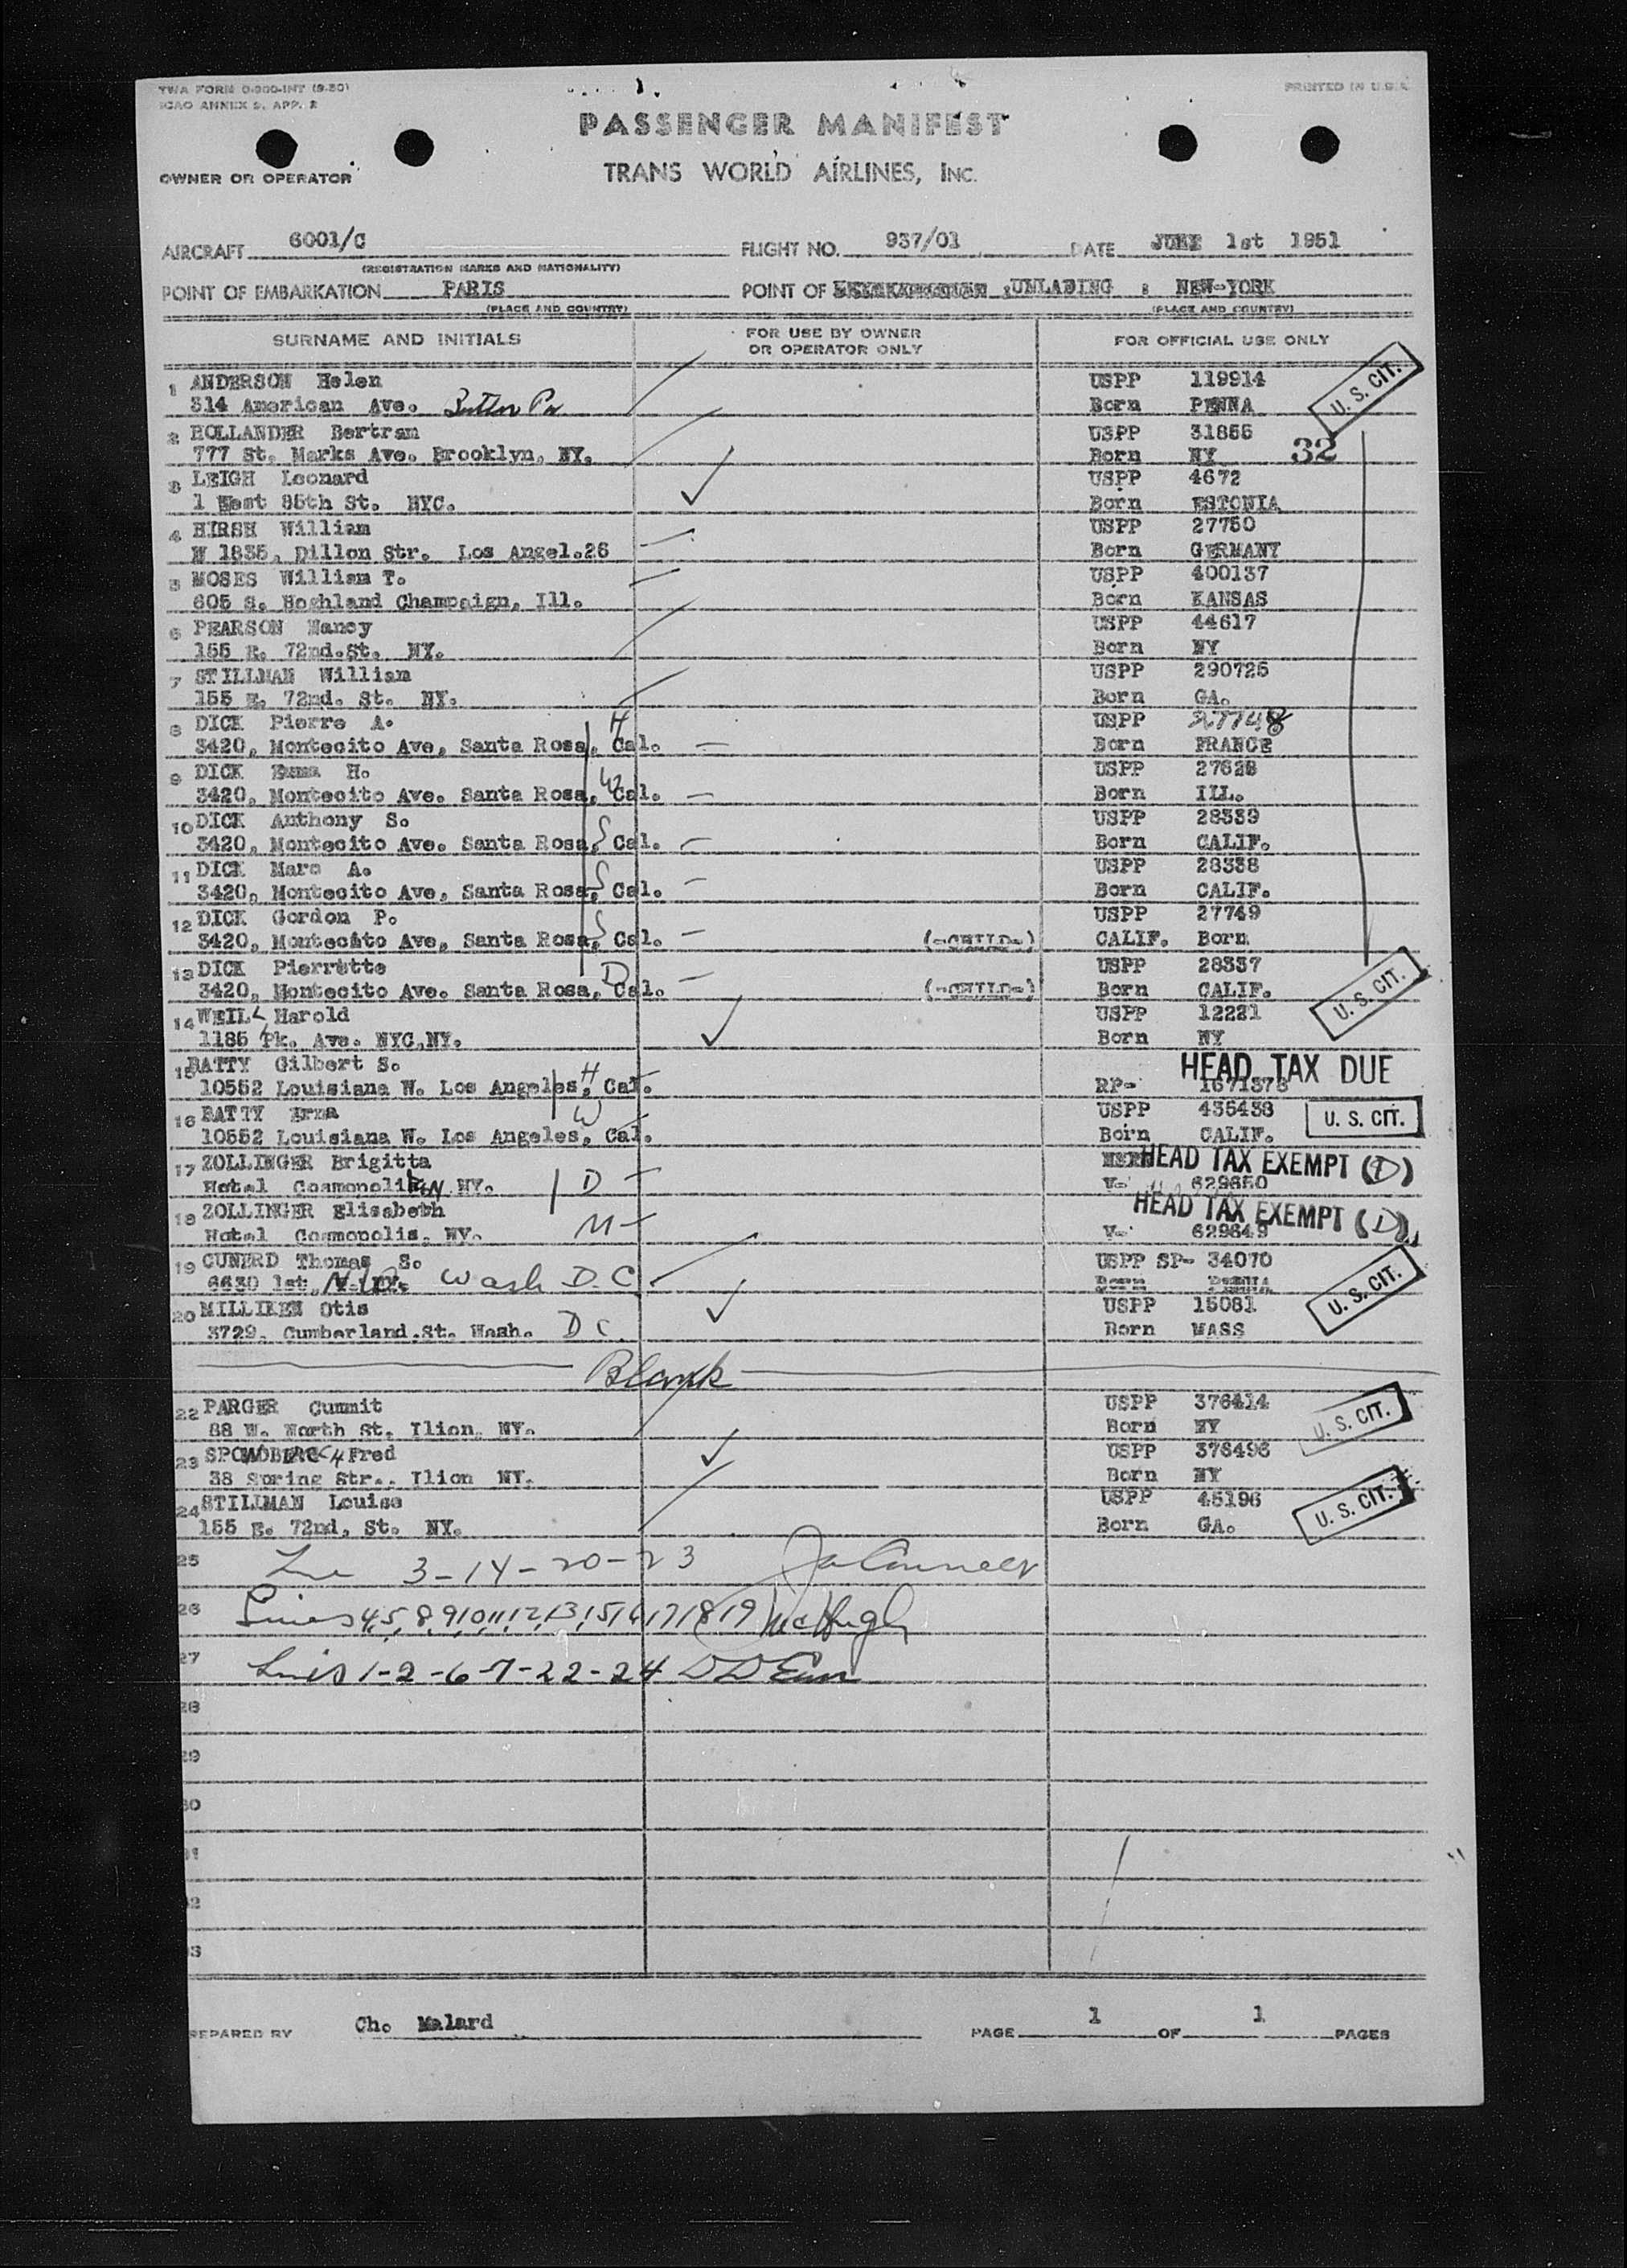 TWA FORM O-900-INT (9-50)
ICAO ANNEX 9, APP. 2
PRINTED IN U.S.A.
PASSENGER MANIFEST
TRANS WORLD AIRLINES, INC.
OWNER OR OPERATOR
AIRCRAFT 6001/C FLIGHT NO. 937/01 DATE JUNE 1st 1951
(REGISTRATION MARKS AND NATIONALITY)
POINT OF EMBARKATION PARIS POINT OF UNLADING : NEW-YORK
(PLACE AND COUNTRY) (PLACE AND COUNTRY)
SURNAME AND INITIALS FOR USE BY OWNER OR OPERATOR ONLY FOR OFFICIAL USE ONLY
1 ANDERSON Helen USPP 119914 U. S. CIT.
314 American Ave. Butler Pa Born PENNA
2 HOLLANDER Bertram USPP 31856
777 St. Marks Ave. Brooklyn, NY. Born NY 32
3 LEIGH Leonard USPP 4672
1 West 85th St. NYC. Born ESTONIA
4 HIRSH William USPP 27750
N 1835, Dillon Str. Los Angel.26 Born GERMANY
5 MOSES William T. USPP 400137
605 S. Hoghland Champaign, Ill. Born KANSAS
6 PEARSON Nancy USPP 44617
155 E. 72nd.St. NY. Born NY
7 STILLMAN William USPP 290725
155 E. 72nd. St. NY. Born GA.
8 DICK Pierre A. H USPP 27748
3420, Montecito Ave, Santa Rosa, Cal. Born FRANCE
9 DICK Emma H. W USPP 27628
3420, Montecito Ave. Santa Rosa, Cal. Born ILL.
10 DICK Anthony S. S USPP 28339
3420, Montecito Ave. Santa Rosa, Cal. Born CALIF.
11 DICK Marc A. S USPP 28338
3420, Montecito Ave, Santa Rosa, Cal. Born CALIF.
12 DICK Gordon P. S USPP 27749
3420, Montecito Ave, Santa Rosa, Cal. (-CHILD-) CALIF. Born
13 DICK Pierrette D USPP 28337
3420, Montecito Ave. Santa Rosa, Cal. (-CHILD-) Born CALIF. U. S. CIT.
14 WEIL Harold USPP 12221
1185 Pk. Ave. NYC,NY. Born NY
15 BATTY Gilbert S. H HEAD TAX DUE
10552 Louisiana W. Los Angeles, Cal. RP- 1671378
16 BATTY Erna W USPP 435438 U. S. CIT.
10552 Louisiana W. Los Angeles, Cal. Born CALIF.
17 ZOLLINGER Brigitta HEAD TAX EXEMPT (D)
Hotel Cosmopolitan NY. D V- 629650
18 ZOLLINGER Elisabeth HEAD TAX EXEMPT (D)
Hotel Cosmopolis, NY. M V- 629649
19 CUNERD Thomas S. USPP SP- 34070
6630 1st. Wash D.C. Born PENNA U. S. CIT.
20 MILLIKEN Otis USPP 15081
3729, Cumberland.St. Wash. DC. Born MASS
Blank
22 PARGER Cummit USPP 376414
88 W. North St, Ilion, NY. Born NY U. S. CIT.
23 Fred USPP 376496
38 Spring Str., Ilion NY. Born NY
24 STILLMAN Louise USPP 45196
155 E. 72nd, St. NY. Born GA. U. S. CIT.
25 Line 3-14-20-23
26 Lines 4,5,8,9,10,11,12,13,15,16,17,18,19 McHugh
27 Lines 1-2-6-7-22-24
28
29
30
31
32
33
PREPARED BY Ch. Malard PAGE 1 OF 1 PAGES